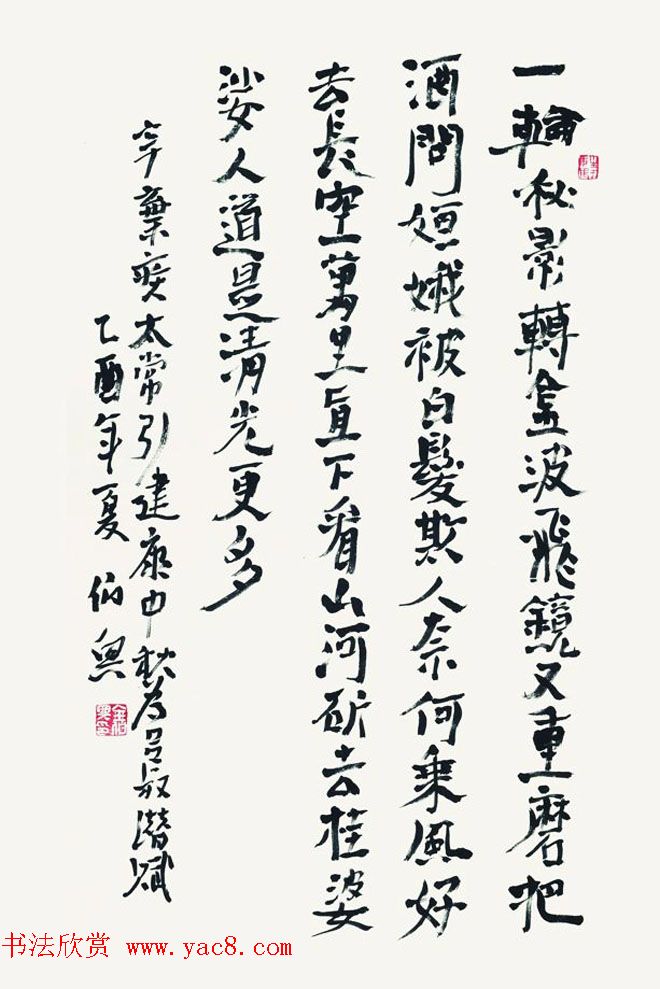 一輪秋影轉金波飛鏡又重磨把
酒問姮娥被白髮欺人奈何乘風好
去長空萬里直下看山河斫去桂婆
娑人道是清光更多
辛棄疾太常引建康中秋為呂叔潛賦
乙酉年夏伯興
书法欣赏 www.yac8.com